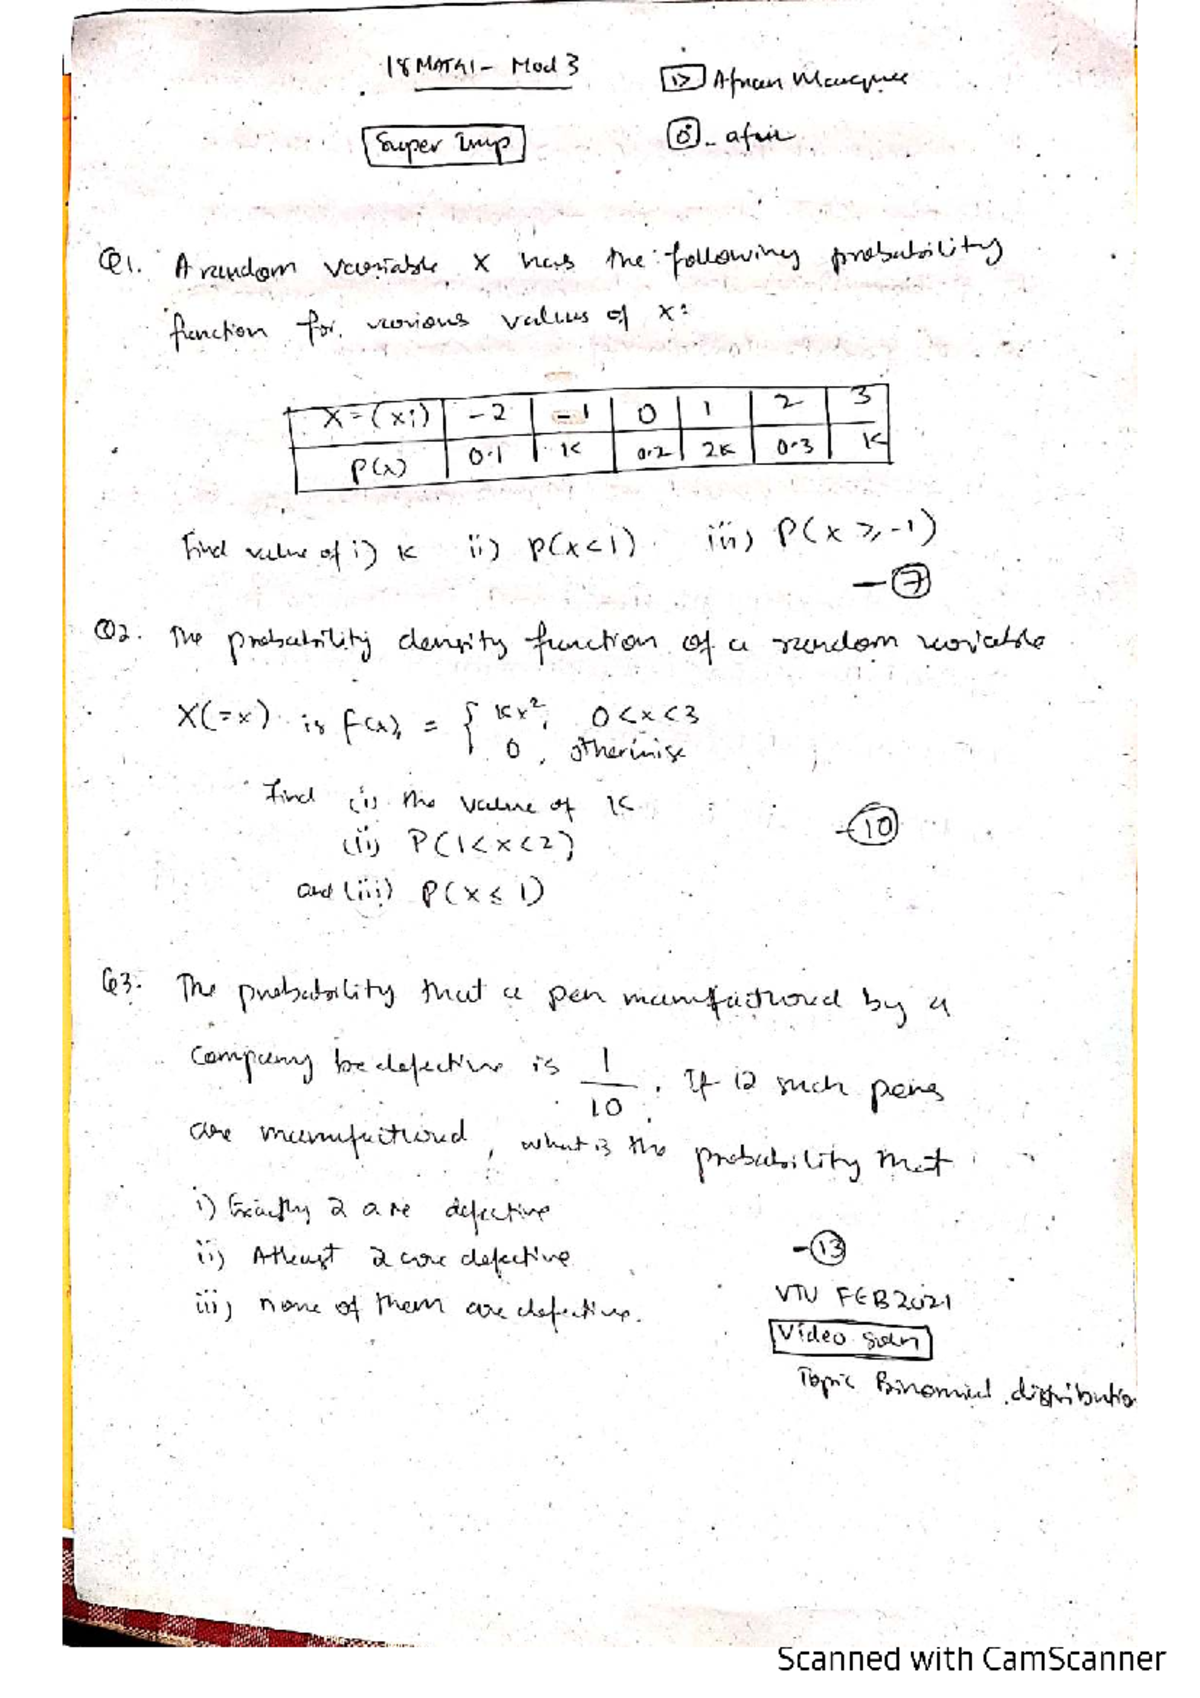 18MAT41 - Mod 3
Afnan Marquee
Super Imp
- afnn
Q1. A random variable X has the following probability
function for various values of x:
X=(xi) -2 -1 0 1 2 3
P(x) 0.1 K 0.2 2K 0.3 K
Find value of i) K ii) P(x<1) iii) P(x ≥ -1)
- 7
Q2. The probability density function of a random variable
X(=x) is f(x) = { Kx², 0<x<3
0, otherwise
Find (i) the value of K
- 10
(ii) P(1<x<2)
and (iii) P(x ≤ 1)
Q3. The probability that a pen manufactured by a
Company be defective is 1/10. If 12 such pens
are manufactured, what is the probability that
i) Exactly 2 are defective
ii) Atleast 2 are defective
- 13
iii) none of them are defective.
VTU FEB 2021
Video Soln
Topic Binomial distributio
Scanned with CamScanner